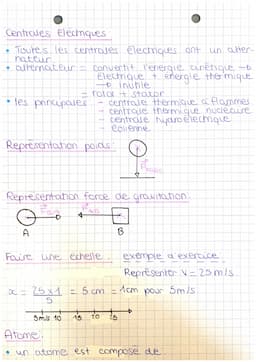 Centrales Electriques:
• Toutes les centrales électriques ont un alter-
nateur
• alternateur = convertit l'énergie cinétique →
électrique + énergie thermique
→ inutile
= rotor + stator
• les principales - centrale thermique à flammes
- centrale thermique nucléaire
- centrale hydroélectrique
- éolienne
Représentation poids:
Représentation force de gravitation:
A B
Faire une échelle: exemple d'exercice
Représenter V = 25m/s.
x = 25 x 1 / 5 = 5 cm = 1cm pour 5m/s
5m/s 10 15
Atome:
• un atome est composé de